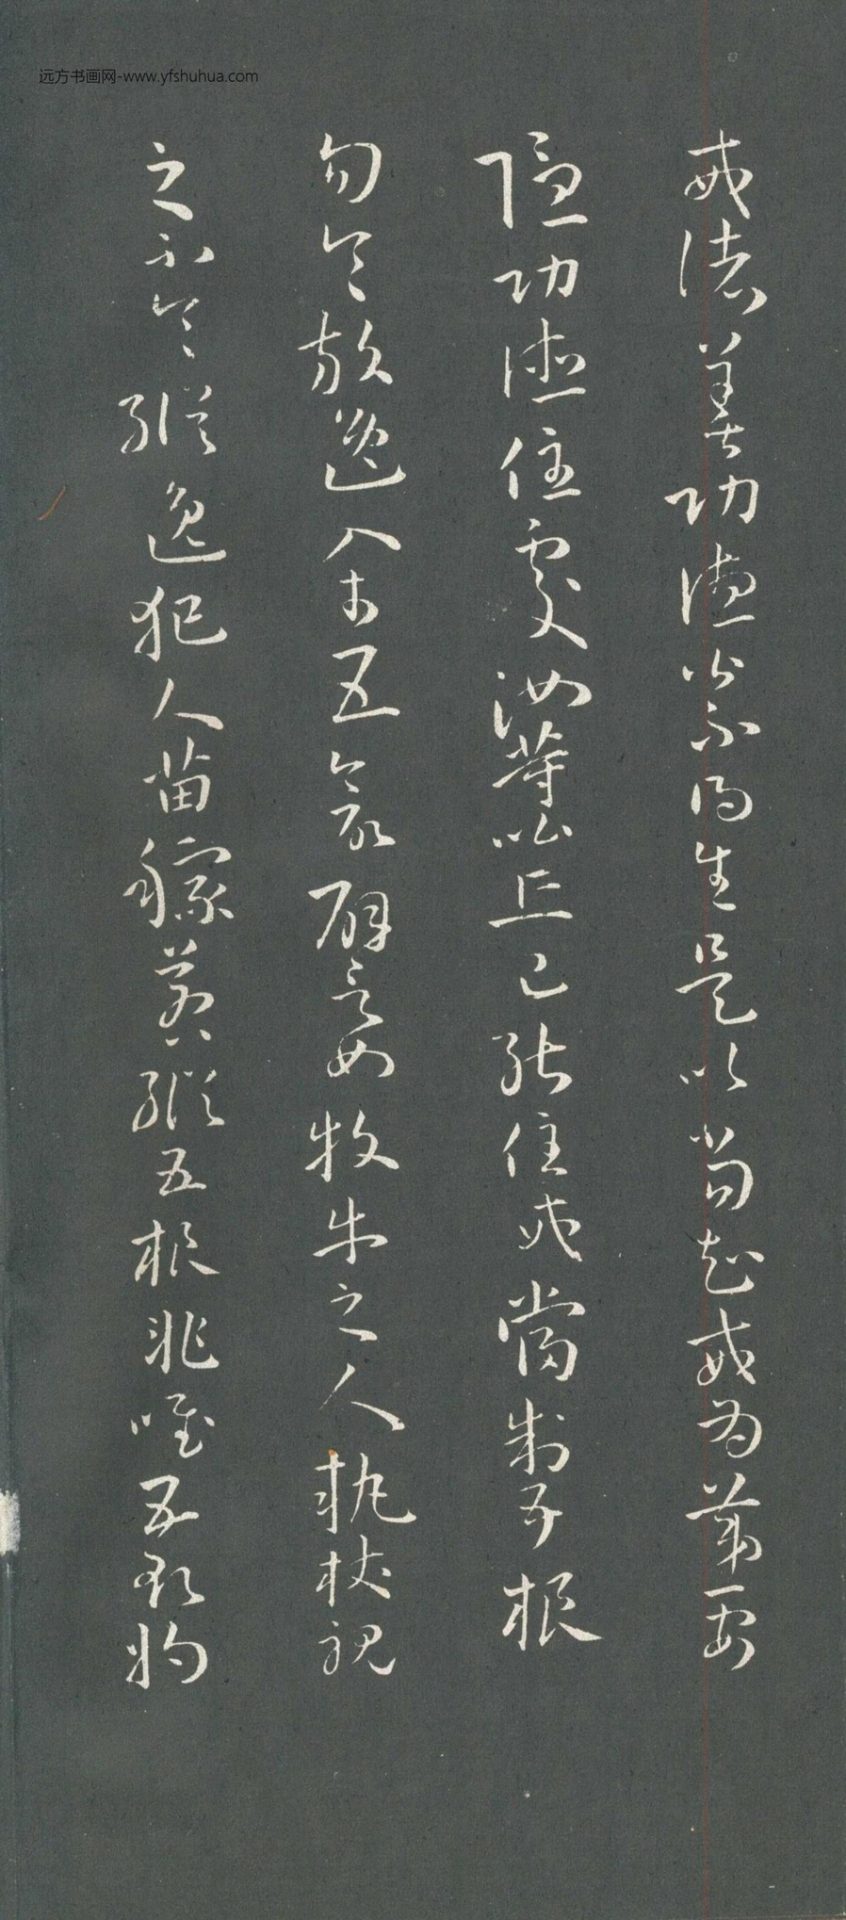 远方书画网-www.yfshuhua.com
戒諸善功德皆不得生是以當知戒為第一安
隱功德住處汝等比丘已能住戒當制五根
勿令放逸入於五欲譬如牧牛之人執杖視
之不令縱逸犯人苗稼若縱五根非唯五欲將